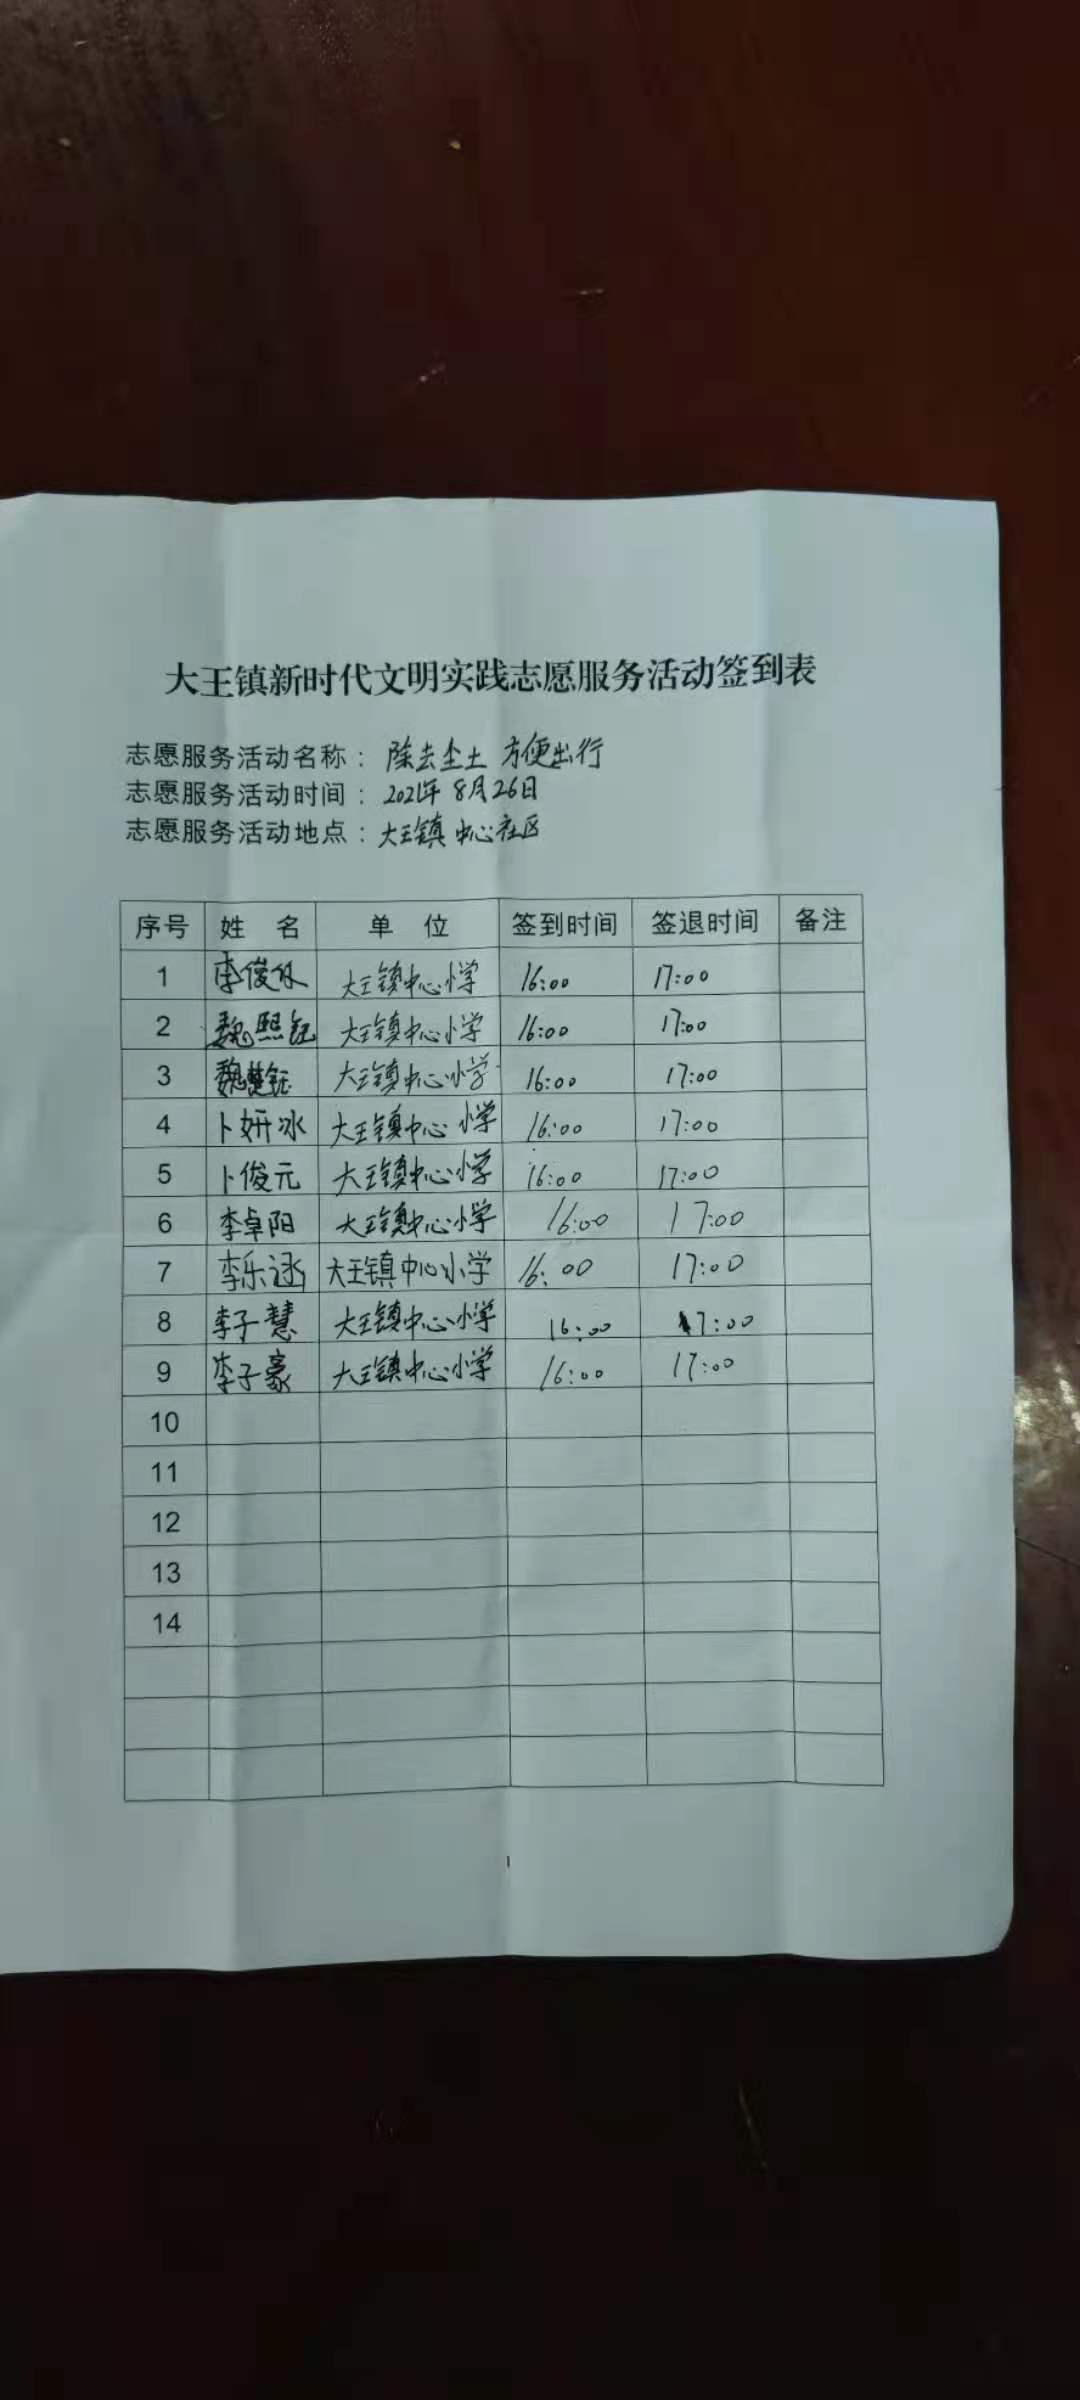 大王镇新时代文明实践志愿服务活动签到表
志愿服务活动名称：除去尘土 方便出行
志愿服务活动时间：2021年8月26日
志愿服务活动地点：大王镇中心社区
序号 姓 名 单 位 签到时间 签退时间 备注
1 李俊 大王镇中心小学 16:00 17:00
2 魏熙钰 大王镇中心小学 16:00 17:00
3 魏楚钰 大王镇中心小学 16:00 17:00
4 卜妍冰 大王镇中心小学 16:00 17:00
5 卜俊元 大王镇中心小学 16:00 17:00
6 李卓阳 大王镇中心小学 16:00 17:00
7 李乐涵 大王镇中心小学 16:00 17:00
8 李子慧 大王镇中心小学 16:00 17:00
9 李子豪 大王镇中心小学 16:00 17:00
10
11
12
13
14